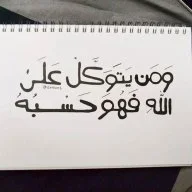 وَمَن يَتَوَكَّل عَلَىٰ
اللَّه فَهُوَ حَسْبُهُ